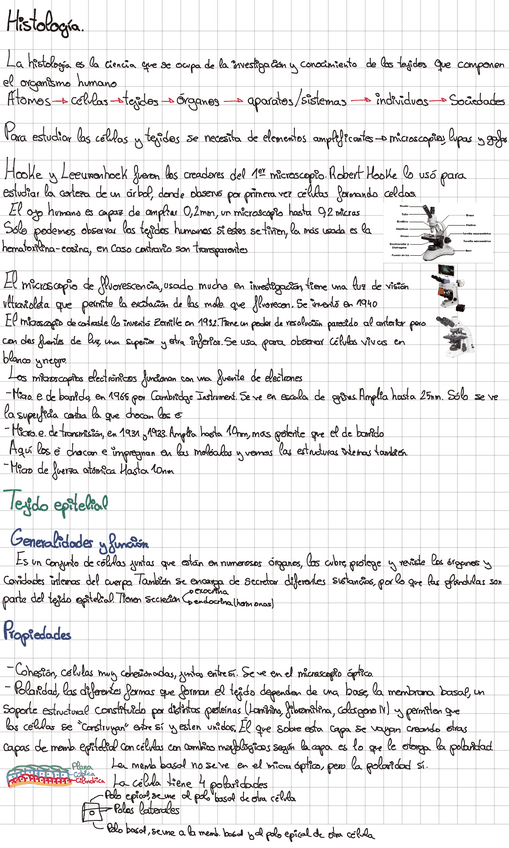 Histología.
La histología es la ciencia que se ocupa de la investigación y conocimiento de los tejidos que componen
el organismo humano
Átomos → células → tejidos → órganos → aparatos/sistemas → individuos → Sociedades
Para estudiar las células y tejidos se necesita de elementos amplificantes → microscopios, lupas y gafas
Hooke y Leeuwenhoek fueron los creadores del 1er microscopio. Robert Hooke lo usó para
estudiar la corteza de un árbol, donde observó por primera vez células formando celdas.
El ojo humano es capaz de ampliar 0,2mm, un microscopio hasta 0,2 micras
Sólo podemos observar los tejidos humanos si estos se tiñen, la más usada es la
hematoxilina-eosina, en caso contrario son transparentes
El microscopio de fluorescencia, usado mucho en investigación tiene una luz de visión
ultravioleta que permite la excitación de las molec que fluorecen. Se inventó en 1940
El microscopio de contraste lo inventó Zernike en 1932. Tiene un poder de resolución parecido al anterior pero
con dos fuentes de luz, una superior y otra inferior. Se usa para observar células vivas en
blanco y negro
Los microscopios electrónicos funcionan con una fuente de electrones
-Micro e. de barrido, en 1965 por Cambridge Instrument. Se ve en escala de grises. Amplia hasta 25nm. Sólo se ve
la superficie contra la que chocan los e
-Micro. e. de transmisión, en 1931 y 1933. Amplia hasta 10nm, mas potente que el de barrido
Aquí los e chocan e impregnan en las moléculas y vemos las estructuras internas también
-Micro de fuerza atómica. Hasta 10nm
Tejido epitelial
Generalidades y función
Es un conjunto de células juntas que están en numerosos órganos, los cubre, protege y reviste los órganos y
cavidades internas del cuerpo. También se encarga de secretar diferentes sustancias, por lo que las glándulas son
parte del tejido epitelial. Tienen secreción exocrina
endocrina (hormonas)
Propiedades
-Cohesión, células muy cohesionadas, juntas entre sí. Se ve en el microscopio óptico
-Polaridad, las diferentes formas que forman el tejido dependen de una base, la membrana basal, un
soporte estructural constituido por distintas proteínas (laminina, fibronectina, colágeno IV) y permiten que
las células se "construyan" entre sí y estén unidas. El que sobre esta capa se vayan creando otras
capas de memb epitelial con células con cambios morfológicos, según la capa es lo que le otorga la polaridad
La memb basal no se ve en el micro óptico, pero la polaridad sí.
Plana
Cúbica
Cilíndrica
La célula tiene 4 polaridades
Polo apical, se une al polo basal de otra célula
Polos laterales
Polo basal, se une a la memb. basal y al polo epical de otra célula